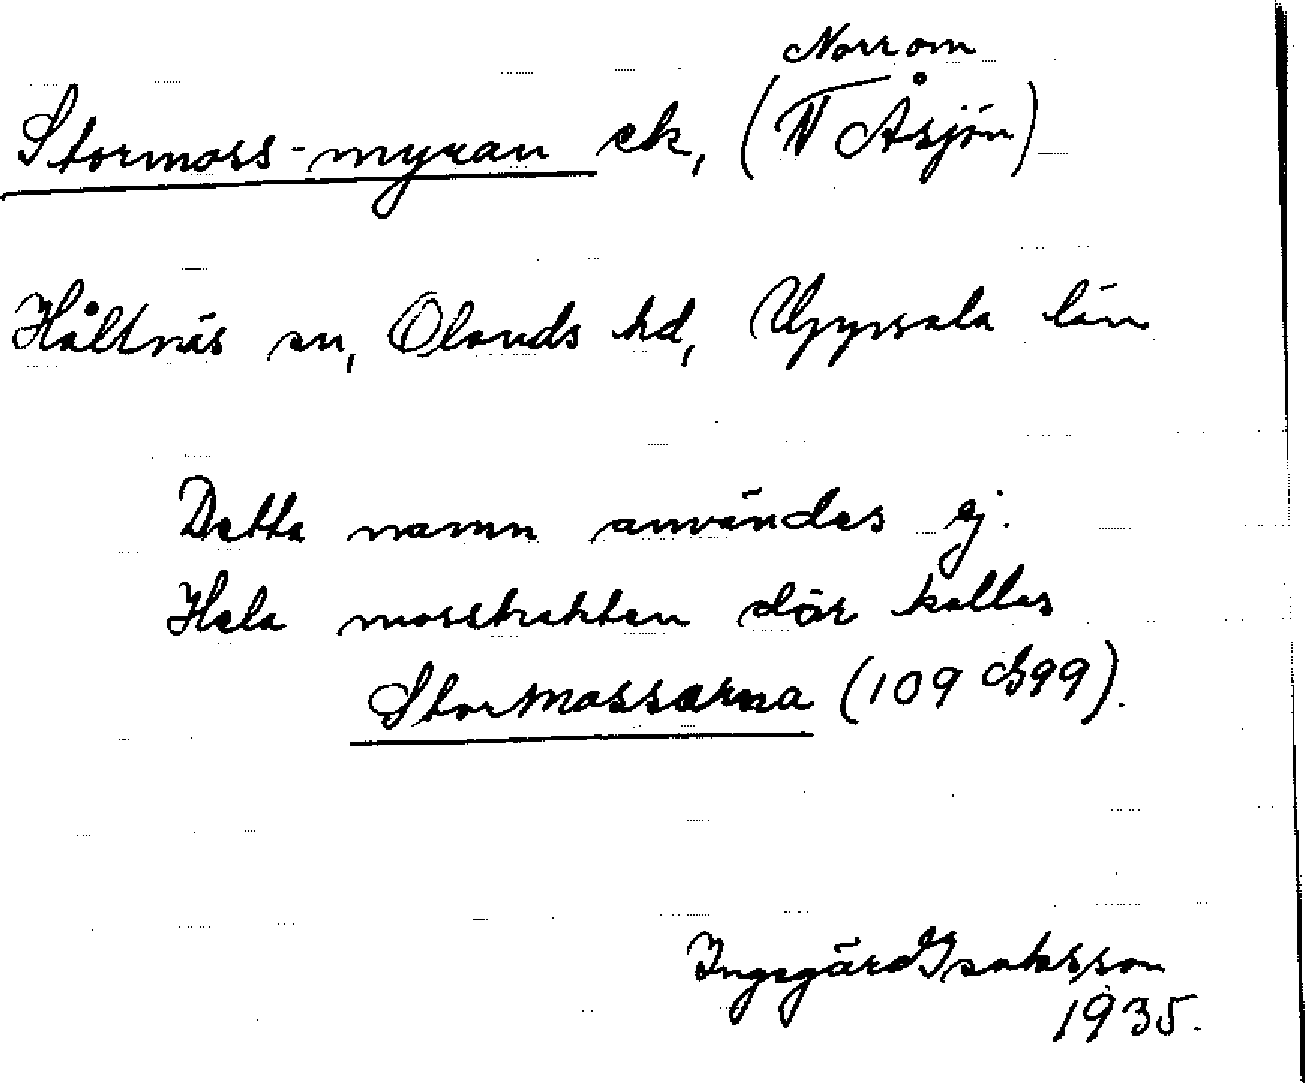 Norr om
Stormoss-myran ek, (N Åsjön)
Hållnäs sn, Olands hd, Uppsala län
Detta namn användes ej.
Hela mosstrakten där kallas
Stormossarna (109 B99).
Ingegärd Isaksson
1935.